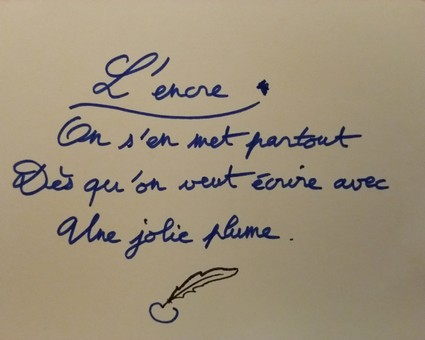 L'encre
On s'en met partout
Dès qu'on veut écrire avec
Une jolie plume.